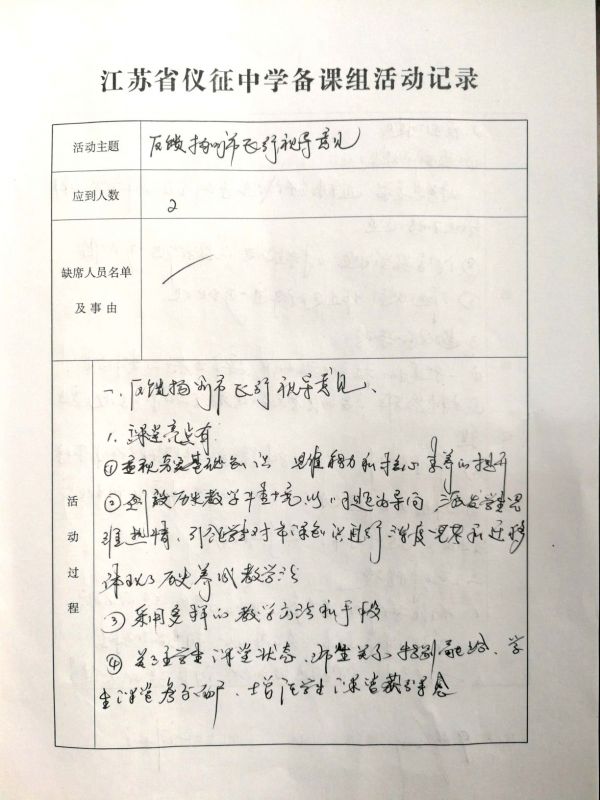 江苏省仪征中学备课组活动记录
活动主题 反馈扬州市飞行视导意见
应到人数 2
缺席人员名单
及事由
活动过程
一、反馈扬州市飞行视导意见、
1. 课堂亮点有
①重视夯实基础知识 思维能力和核心素养的提升
② 历史教学 情境 以问题为导向 激发学生思
维热情、引领学生对本课知识进行深度思考和迁移
体现了历史养成教学法
③ 采用多样的教学方法和手段
④ 关注学生课堂状态、师生关系特别融洽、学
生课堂参与面广、增强学生课堂获得感